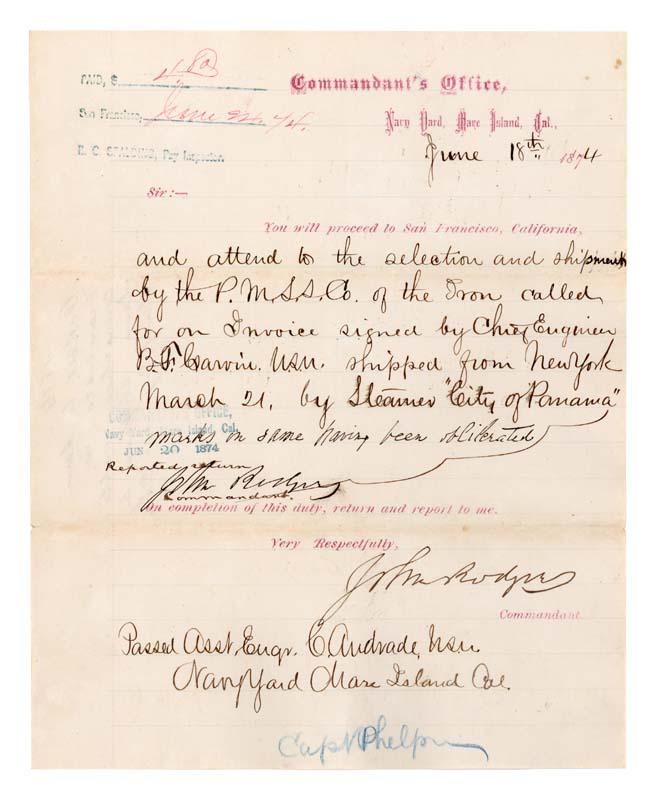 PAID, $
Commandant's Office,
San Francisco, June 22. 74.
Navy Yard, Mare Island, Cal.,
Pay Inspector.
June 18th 1874
Sir:—
You will proceed to San Francisco, California,
and attend to the selection and shipment
by the P. M. S. S. Co. of the Iron called
for on Invoice signed by Chief Engineer
B. F. Garvin. USN. shipped from New York
March 21, by Steamer "City of Panama"
marks on same having been obliterated
OFFICE,
Navy Yard, Mare Island, Cal.
JUN 20 1874
Reported return
John Rodgers
Commandant.
On completion of this duty, return and report to me.
Very Respectfully,
John Rodgers
Commandant.
Passed Asst. Engr. C. Andrade, USN
Navy Yard Mare Island Cal.
Capt Phelps